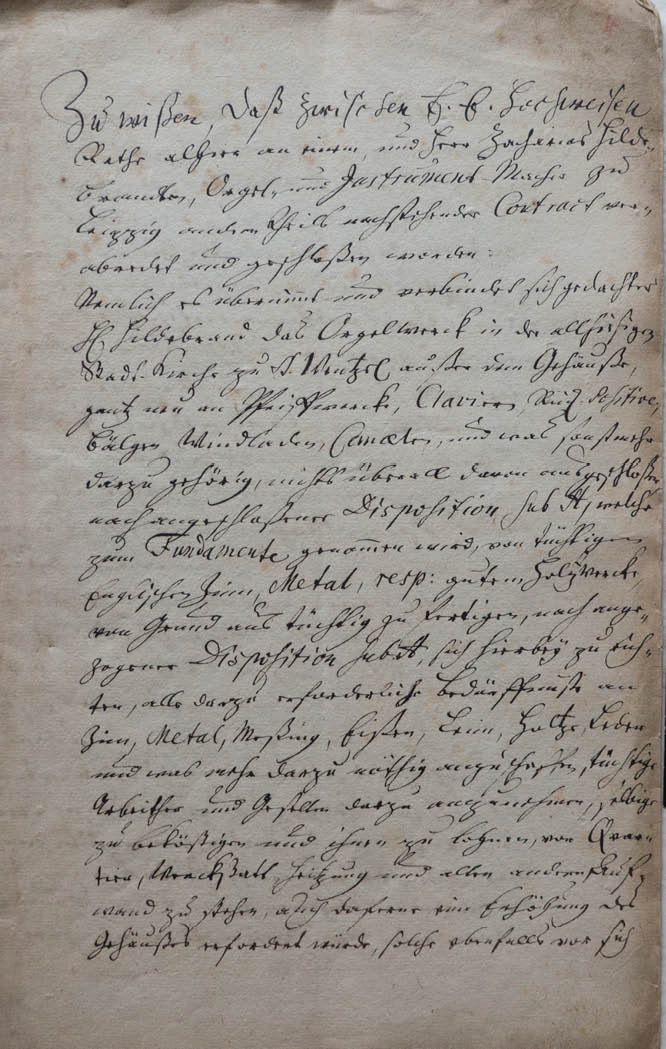 Zu wißen, daß zwischen E. E. Hochweisen
Rathe alhier an einem, und Herr Zacharias Hilde-
branden, Orgel- und Instrument-Macher zu
Leipzig andern Theils nachstehender Contract ver-
abredet und geschloßen worden:
Nemlich es übernimmt und verbindet sich gedachter
H. Hildebrand das Orgelwerck in der allhiesigen
Stadt-Kirche zu St. Wentzel außer dem Gehäuße,
gantz neu an Pfeiffwercke, Clavieren, Rück-Positive,
Bälgen Windladen, Canälen, und was sonst mehr
darzu gehörig, nichts überall davon ausgeschloßen
nach angeschloßener Disposition, sub A, welche
zum Fundamente genommen wird, von tüchtigen
Englischen Zinn, Metal, resp: guten Holtzwercke,
von Grund aus tüchtig zu fertigen, nach ange-
zogener Disposition sub A, sich hierbey zu rich-
ten, alle darzu erforderliche Bedürffniße an
Zinn, Metal, Meßing, Eißen, Leim, Holtze, Leder
und was mehr darzu nöthig anzuschaffen, tüchtige
Arbeither und Gesellen darzu anzunehmen, selbige
zu beköstigen und ihnen zu lohnen, vor Quar-
tier, Werckstatt, Heitzung und allen andern Auf-
wand zu stehen, auch daferne eine Erhöhung des
Gehäußes erfordert würde, solche ebenfalls vor sich